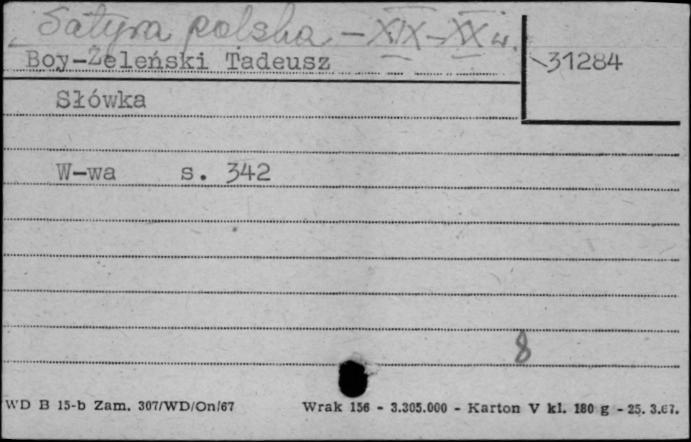 Satyra polska – XIX–XX w.
Boy-Żeleński Tadeusz
31284
Słówka
W-wa s. 342
8
WD B 15-b Zam. 307/WD/On/67 Wrak 156 - 3.305.000 - Karton V kl. 180 g - 25. 3.67.